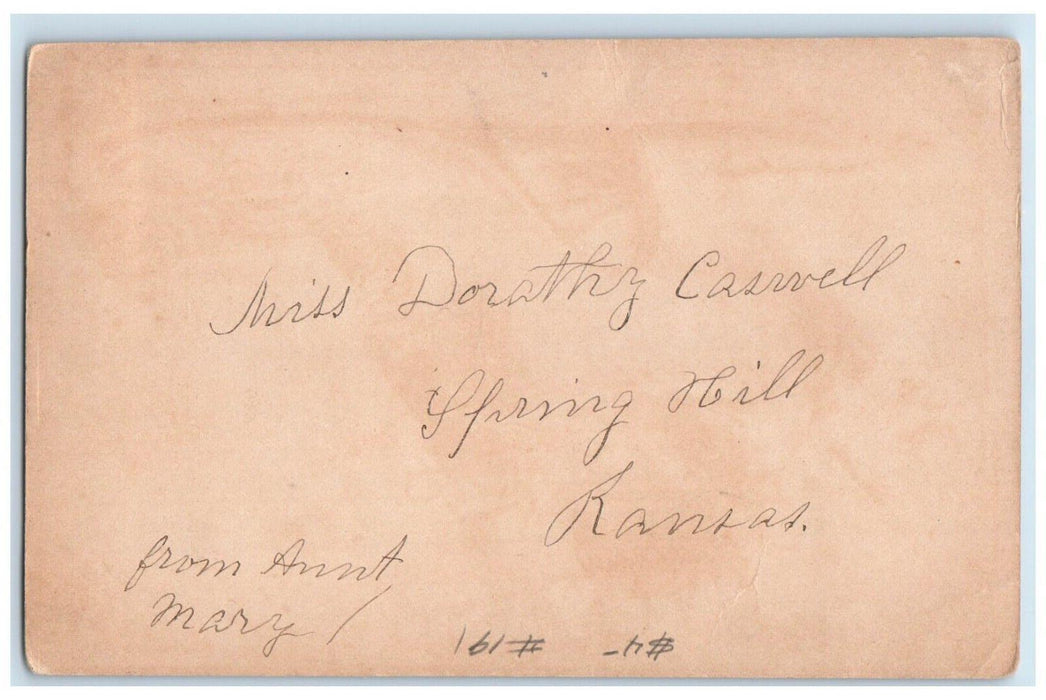 Miss Dorathy Caswell
Spring Hill
Kansas.
from Aunt
Mary
#191 $4-